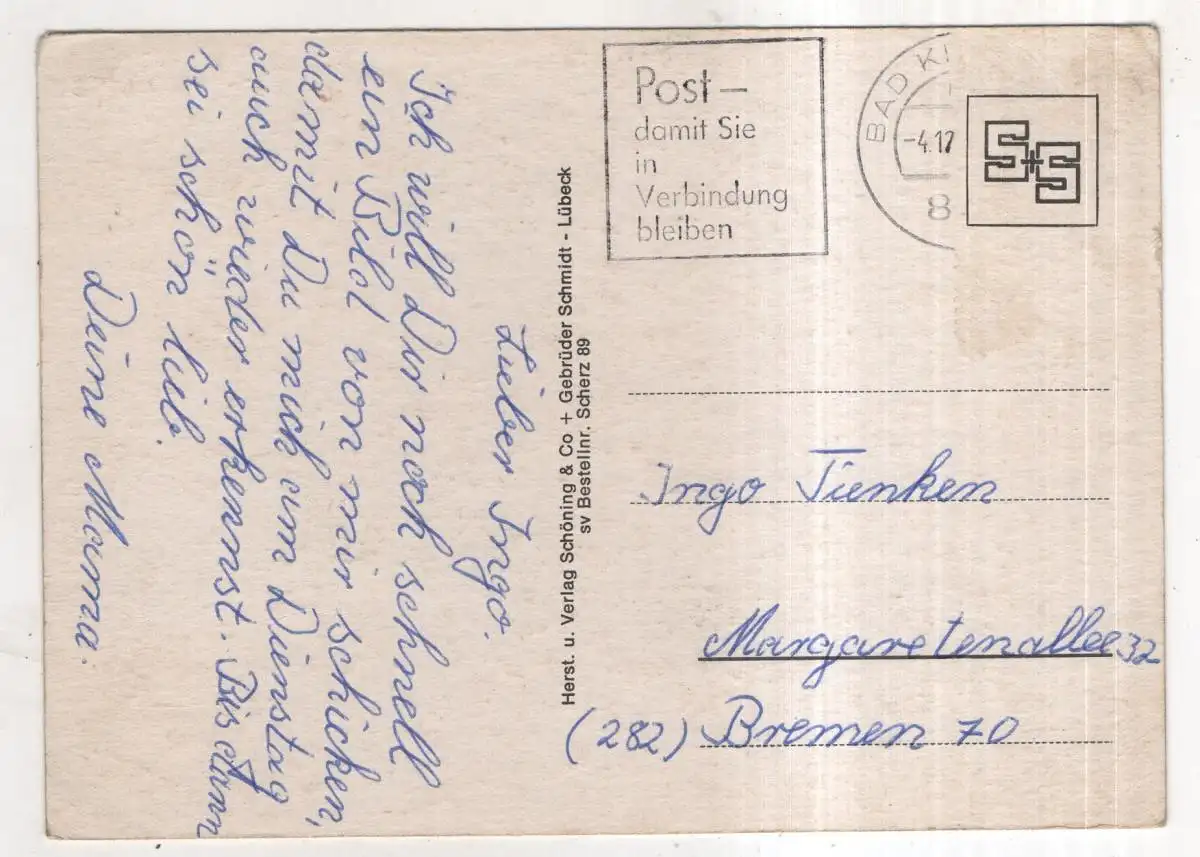 Lieber Ingo.
Ich will Dir noch schnell
ein Bild von mir schicken,
damit Du mich am Dienstag
auch wieder erkennst. Bis dann
sei schön lieb.
Deine Mama.
Herst. u. Verlag Schöning & Co + Gebrüder Schmidt - Lübeck
sv Bestellnr. Scherz 89
Post –
damit Sie
in
Verbindung
bleiben
BAD
-4.12
8
S+S
Ingo Tienken
Margaretenallee 32
(282) Bremen 70